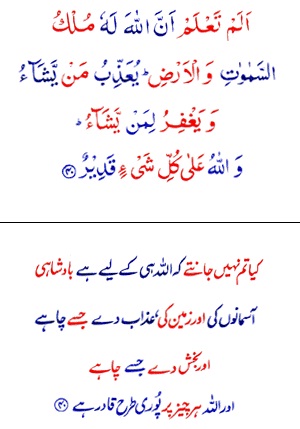 اَلَمْ تَعْلَمْ اَنَّ اللّٰهَ لَهٗ مُلْكُ
السَّمٰوٰتِ وَ الْاَرْضِ ؕ يُعَذِّبُ مَنْ يَّشَآءُ
وَ يَغْفِرُ لِمَنْ يَّشَآءُ ؕ
وَ اللّٰهُ عَلٰى كُلِّ شَىْءٍ قَدِيْرٌ ﴿۴۰﴾
کیا تم نہیں جانتے کہ اللہ ہی کے لیے ہے بادشاہی
آسمانوں کی اور زمین کی، عذاب دے جسے چاہے
اور بخش دے جسے چاہے
اور اللہ ہر چیز پر پُوری طرح قادر ہے ﴿۴۰﴾